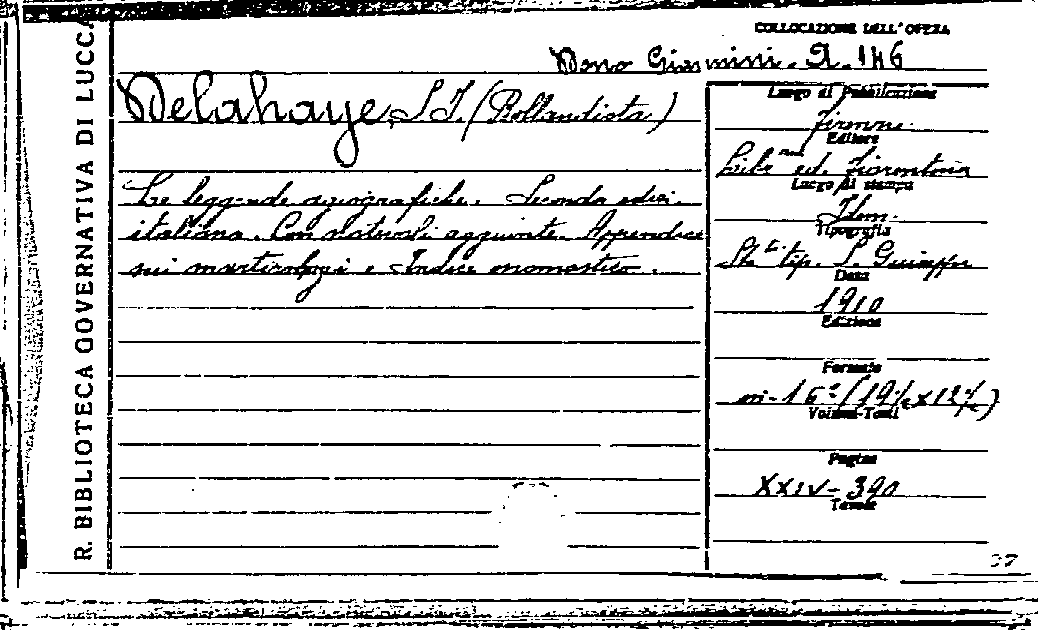 R. BIBLIOTECA GOVERNATIVA DI LUCCA
COLLOCAZIONE DELL'OPERA
Dono Giannini. A. 146
Delahaye, S. J. (Bollandista)
Le leggende agiografiche. Seconda ediz.
italiana. Con notevoli aggiunte. Appendice
sui martirologi e Indice onomastico.
Luogo di Pubblicazione
Firenze.
Editore
Lib. ed. Fiorentina
Luogo di stampa
Idem.
Tipografia
tip. S. Giuseppe
Data
1910
Edizione
Formato
in-16° (19½ x 12½)
Volumi-Tomi
Pagine
XXIV-390
Tavole